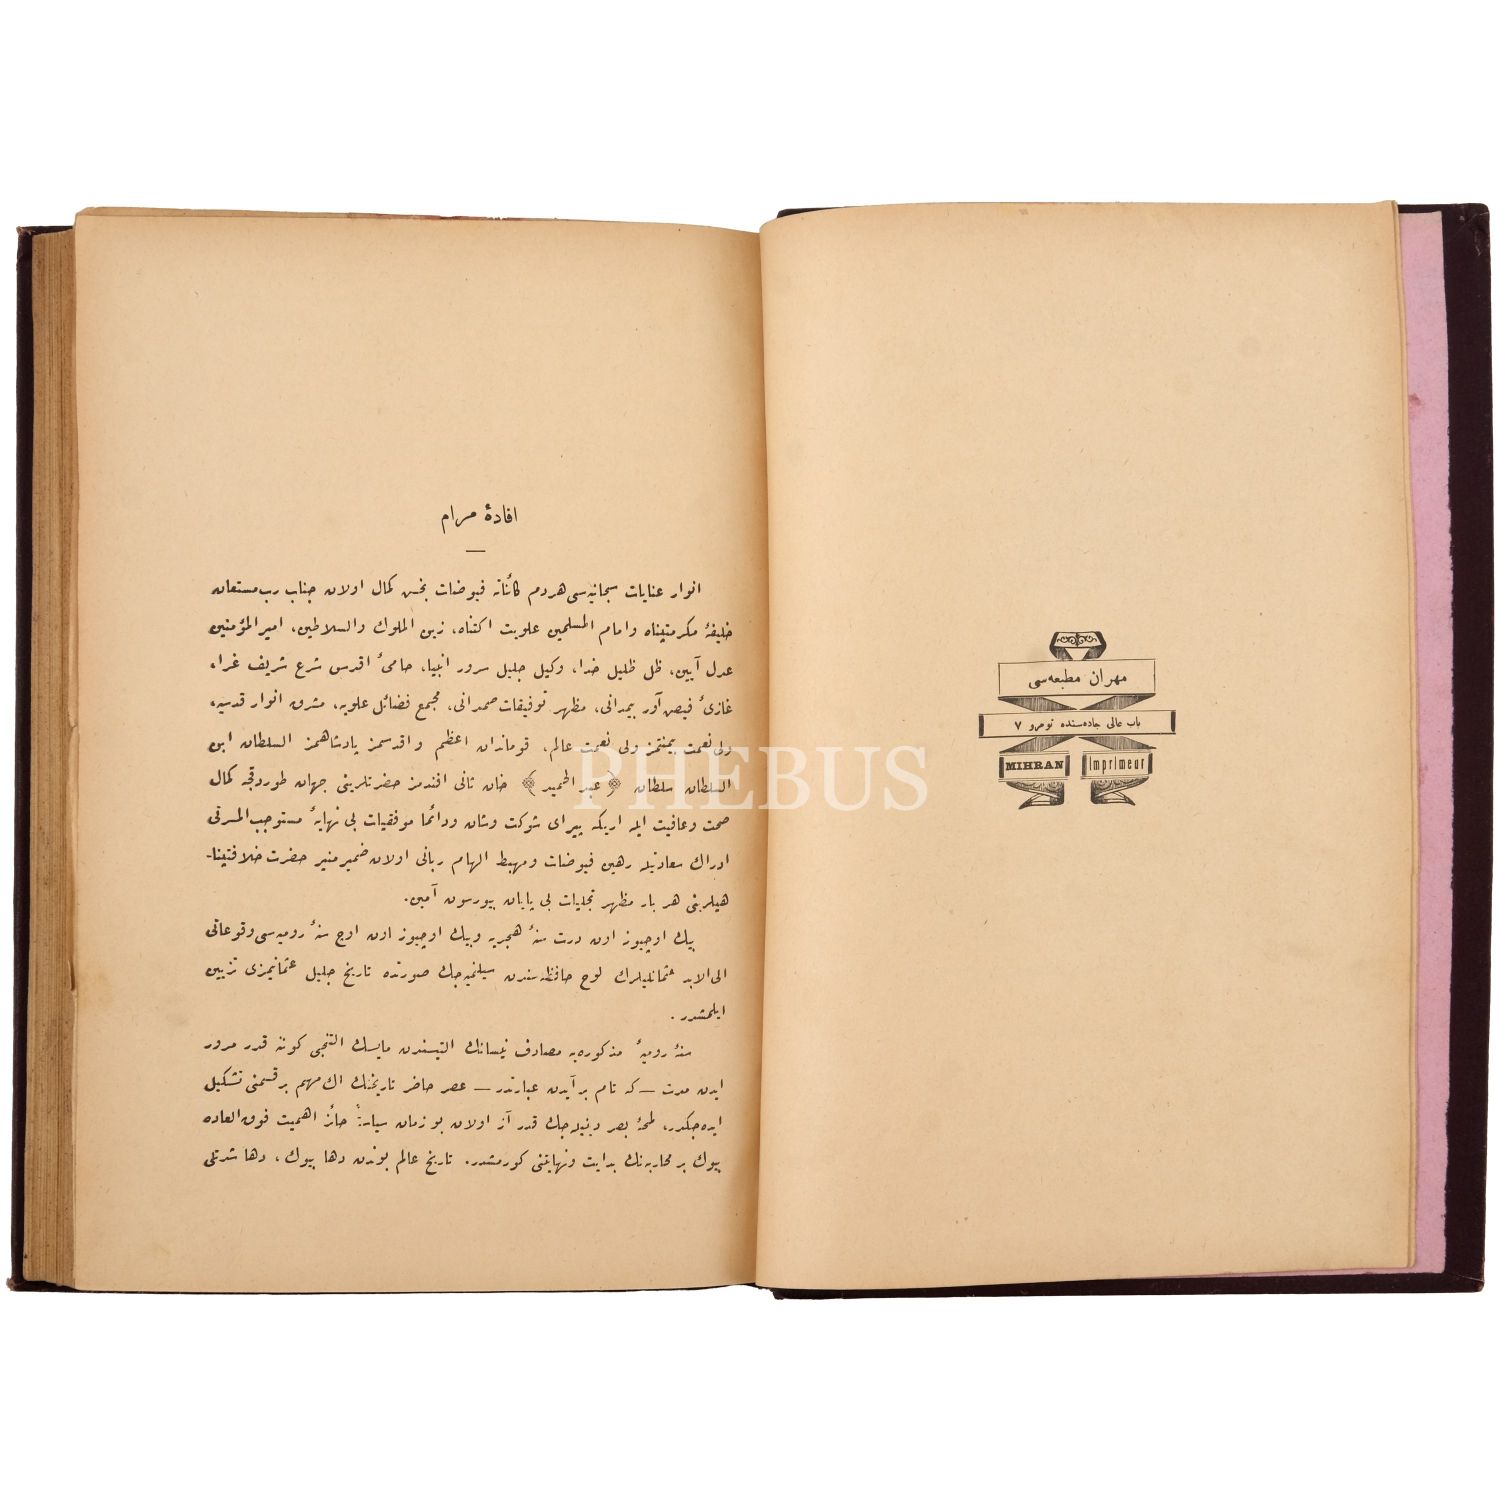 مهران مطبعه‌سی
باب عالی جاده‌سنده نومرو ٧
MIHRAN Imprimeur
افادهٔ مرام
انوار عنایات سبحانیه‌سی هردم کائناته فیوضات بخش کمال اولان جناب رب مستعان
خلیفهٔ مکرمتپناه و امام المسلمین علویت اکتناه، زین الملوك والسلاطین، امیر المؤمنین
عدل آیین، ظل ظلیل خدا، وکیل جلیل سرور انبیا، حامیٔ اقدس شرع شریف غراء
غازیٔ فیض آور یمدانی، مظهر توفیقات صمدانی، مجمع فضائل علویه، مشرق انوار قدسیه،
ولی نعمت بیمنتمز ولی نعمت عالم، قوماندان اعظم و اقدسمز پادشاهمز السلطان ابن
السلطان سلطان ﴿ عبد الحمید ﴾ خان ثانی افندمز حضرتلرینی جهان طوردقجه کمال
صحت و عافیت ایله اریکه پیرای شوکت وشان ودائما موفقیات بی نهایهٔ مستوجب المسرتی
ادراك سعادتیله رهین فیوضات ومهبط الهام ربانی اولان ضمیر منیر حضرت خلافتپنا-
هیلرینی هر بار مظهر تجلیات بی پایان بیورسون آمین.
بیك اوچیوز اون درت سنهٔ هجریه وبیك اوچیوز اون اوچ سنهٔ رومیه‌سی وقوعاتی
الی الابد عثمانلیلرك لوح حافظه‌سندن سیلنمیه‌جك صورتده تاریخ جلیل عثمانیمزی تزیین
ایلمشدر.
سنهٔ رومیهٔ مذکوره‌یه مصادف نیسانك التیسندن مایسك التنجی کونه قدر مرور
ایدن مدت — که تام بر آیدن عبارتدر — عصر حاضر تاریخنك اك مهم بر قسمنی تشکیل
ایده‌جکدر، لمحهٔ بصر دینیله‌جك قدر آز اولان بو زمان حائز اهمیت فوق العاده
بیوك بر محاربه‌نك بدایت ونهایتنی کورمشدر. تاریخ عالم بوندن دها بیوك، دها شدتلی
PHEBUS